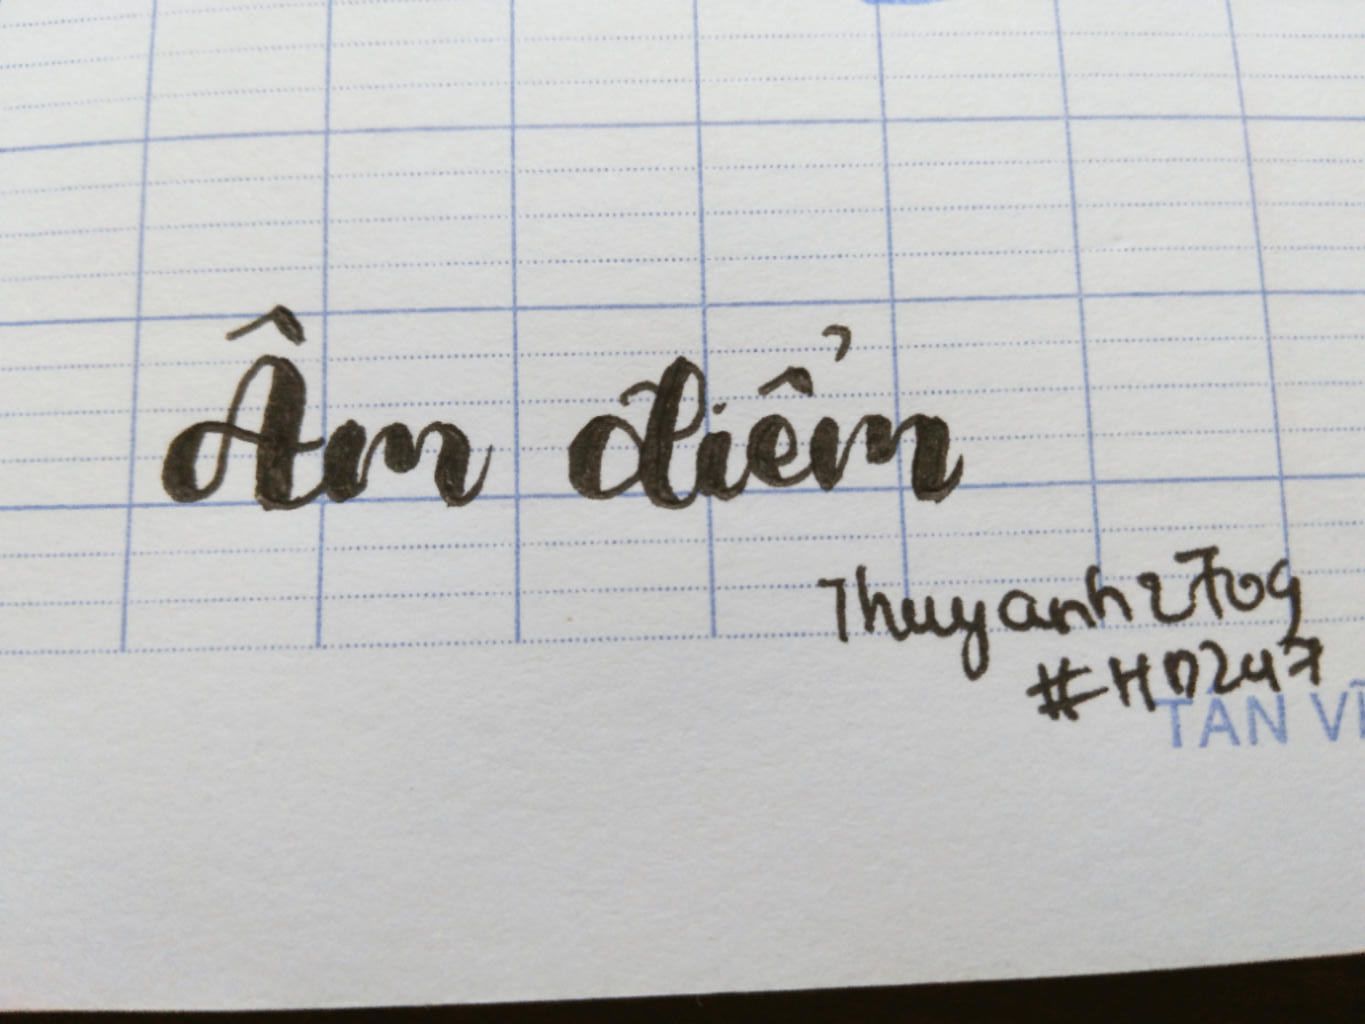 Âm điểm
Thuyanh2709
#HD247
TÂN VĨ